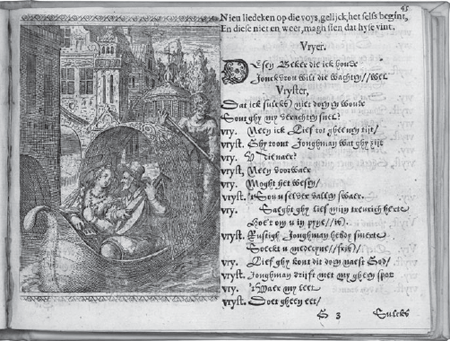 45
Nieu liedeken op die voys, gelijck, het selfs begint,
En diese niet en weet, magh sien dat hyse vint.
Vryer.
Desen Beker die ick houde
Jonckvrou wilt die wachten//wel
Vryster,
Dat ick sulcks niet doen woude
Sout ghy my verachten snel?
vry. Neen ick Lief tot gheener tijt/
vryst. Ghy toont Jonghman wat ghy zijt
vry. Dit naer?
vryst, Neen voorwaer
vry. Moght het wesen/
vryst. 'tSou u selver vallen swaer.
vry. Saeght ghy lief mijn treurich herte
Hoe't om u in pijne//is.
vryst. Rustigh Jonghman hebdy smerte
Soeckt u medecijne//fris/
vry. Lief ghy kont dit doen naest God/
vryst. Jonghman drijft met my gheen spot
vry. 'tWaer my leet
vryst. Doet gheen eet/
G 3 Sulcks